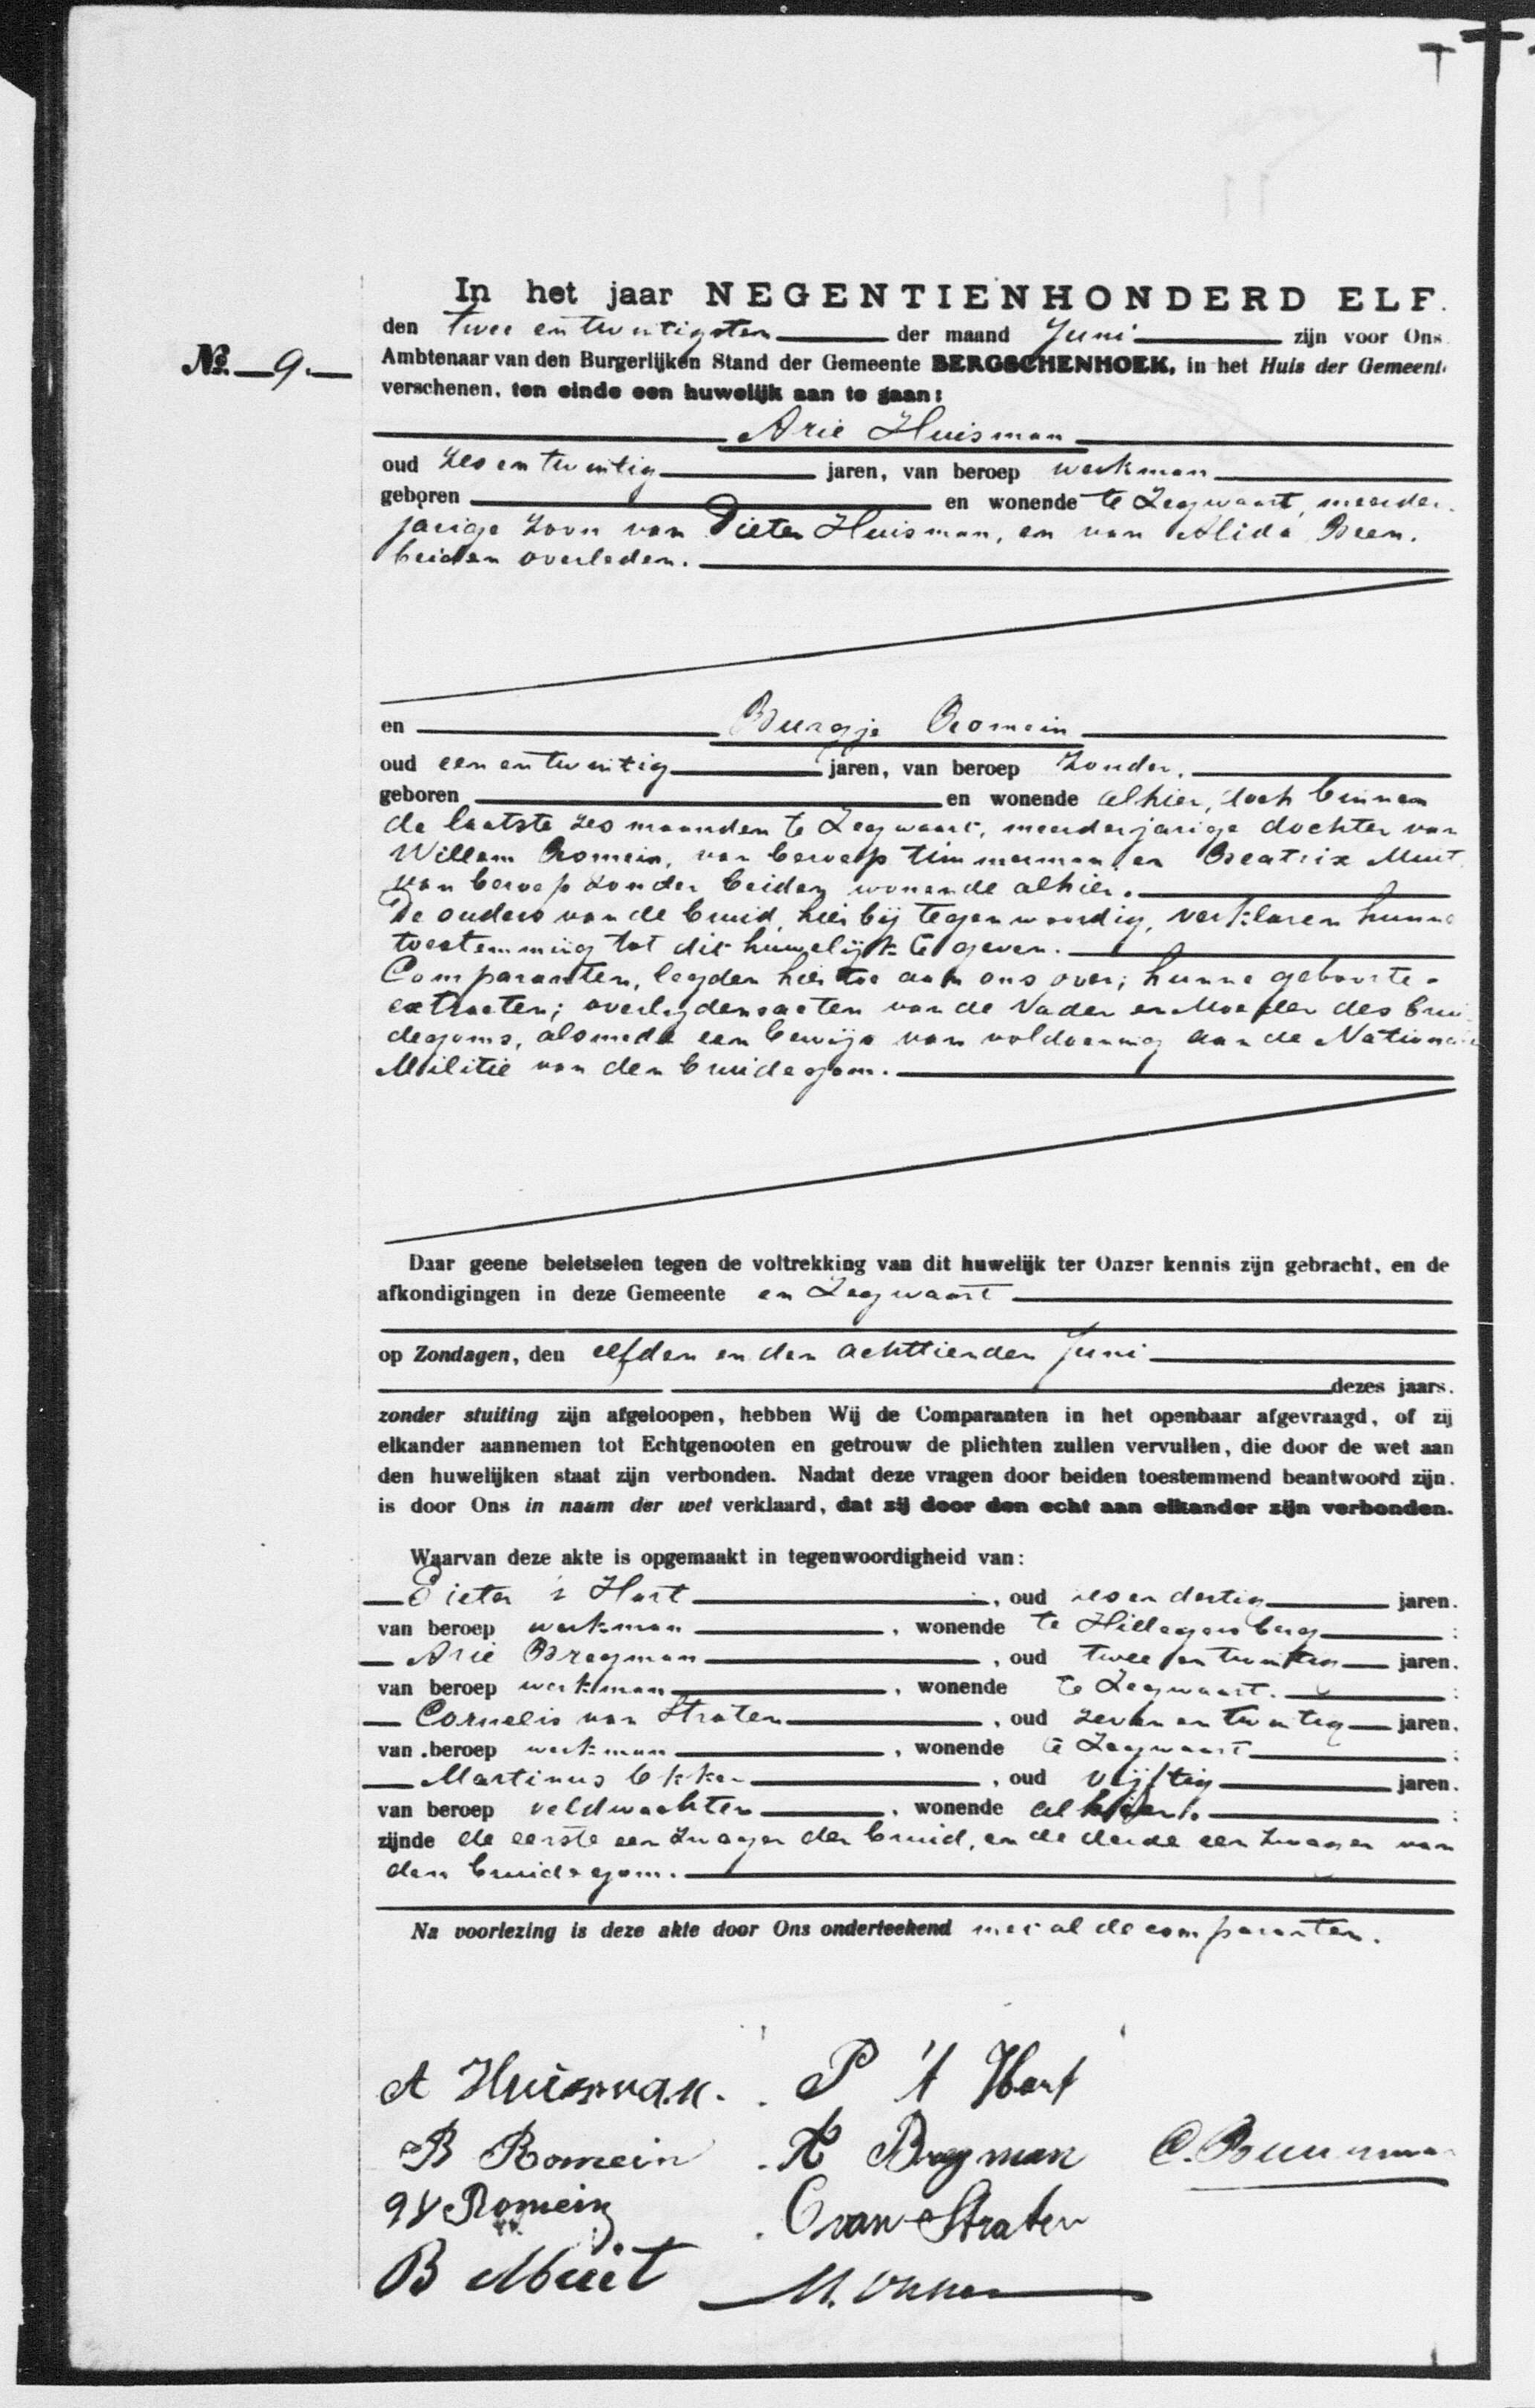 In het jaar NEGENTIENHONDERD ELF.
den twee en twintigsten der maand Juni zijn voor Ons
No. 9. Ambtenaar van den Burgerlijken Stand der Gemeente BERGSCHENHOEK, in het Huis der Gemeente
verschenen, ten einde een huwelijk aan te gaan:
Arie Huisman
oud zes en twintig jaren, van beroep werkman
geboren en wonende te Zegwaart, meerder-
jarige zoon van Pieter Huisman, en van Alida Breen.
beiden overleden.
en Burgje Romein
oud een en twintig jaren, van beroep zonder.
geboren en wonende alhier, doch binnen
de laatste zes maanden te Zegwaart, meerderjarige dochter van
Willem Romein, van beroep timmerman en Beatrix Muit
van beroep zonder beiden wonende alhier.
De ouders van de bruid, hierbij tegenwoordig, verklaren hunne
toestemming tot dit huwelijk te geven.
Comparanten, legden hiertoe aan ons over; hunne geboorte-
extracten; overlijdensacten van de Vader en Moeder des brui-
degoms, alsmede een bewijs van voldoening aan de Nationale
Militie van den bruidegom.
Daar geene beletselen tegen de voltrekking van dit huwelijk ter Onzer kennis zijn gebracht, en de
afkondigingen in deze Gemeente en Zegwaart
op Zondagen, den elfden en den achttienden Juni
dezes jaars.
zonder stuiting zijn afgeloopen, hebben Wij de Comparanten in het openbaar afgevraagd, of zij
elkander aannemen tot Echtgenooten en getrouw de plichten zullen vervullen, die door de wet aan
den huwelijken staat zijn verbonden. Nadat deze vragen door beiden toestemmend beantwoord zijn.
is door Ons in naam der wet verklaard, dat zij door den echt aan elkander zijn verbonden.
Waarvan deze akte is opgemaakt in tegenwoordigheid van:
Pieter 't Hart, oud zes en dertig jaren.
van beroep werkman, wonende te Hillegersberg:
Arie Bregman, oud twee en twintig jaren.
van beroep werkman, wonende te Zegwaart.:
Cornelis van Straten, oud zeven en twintig jaren.
van beroep werkman, wonende te Zegwaart:
Martinus Okker, oud vijftig jaren.
van beroep veldwachter, wonende alhier.:
zijnde de eerste een zwager der bruid, en de derde een zwager van
den bruidegom.
Na voorlezing is deze akte door Ons onderteekend met al de comparanten.
A Huisman. P 't Hart
B Romein A Bregman
W Romein C van Straten
B Muit M. Okker